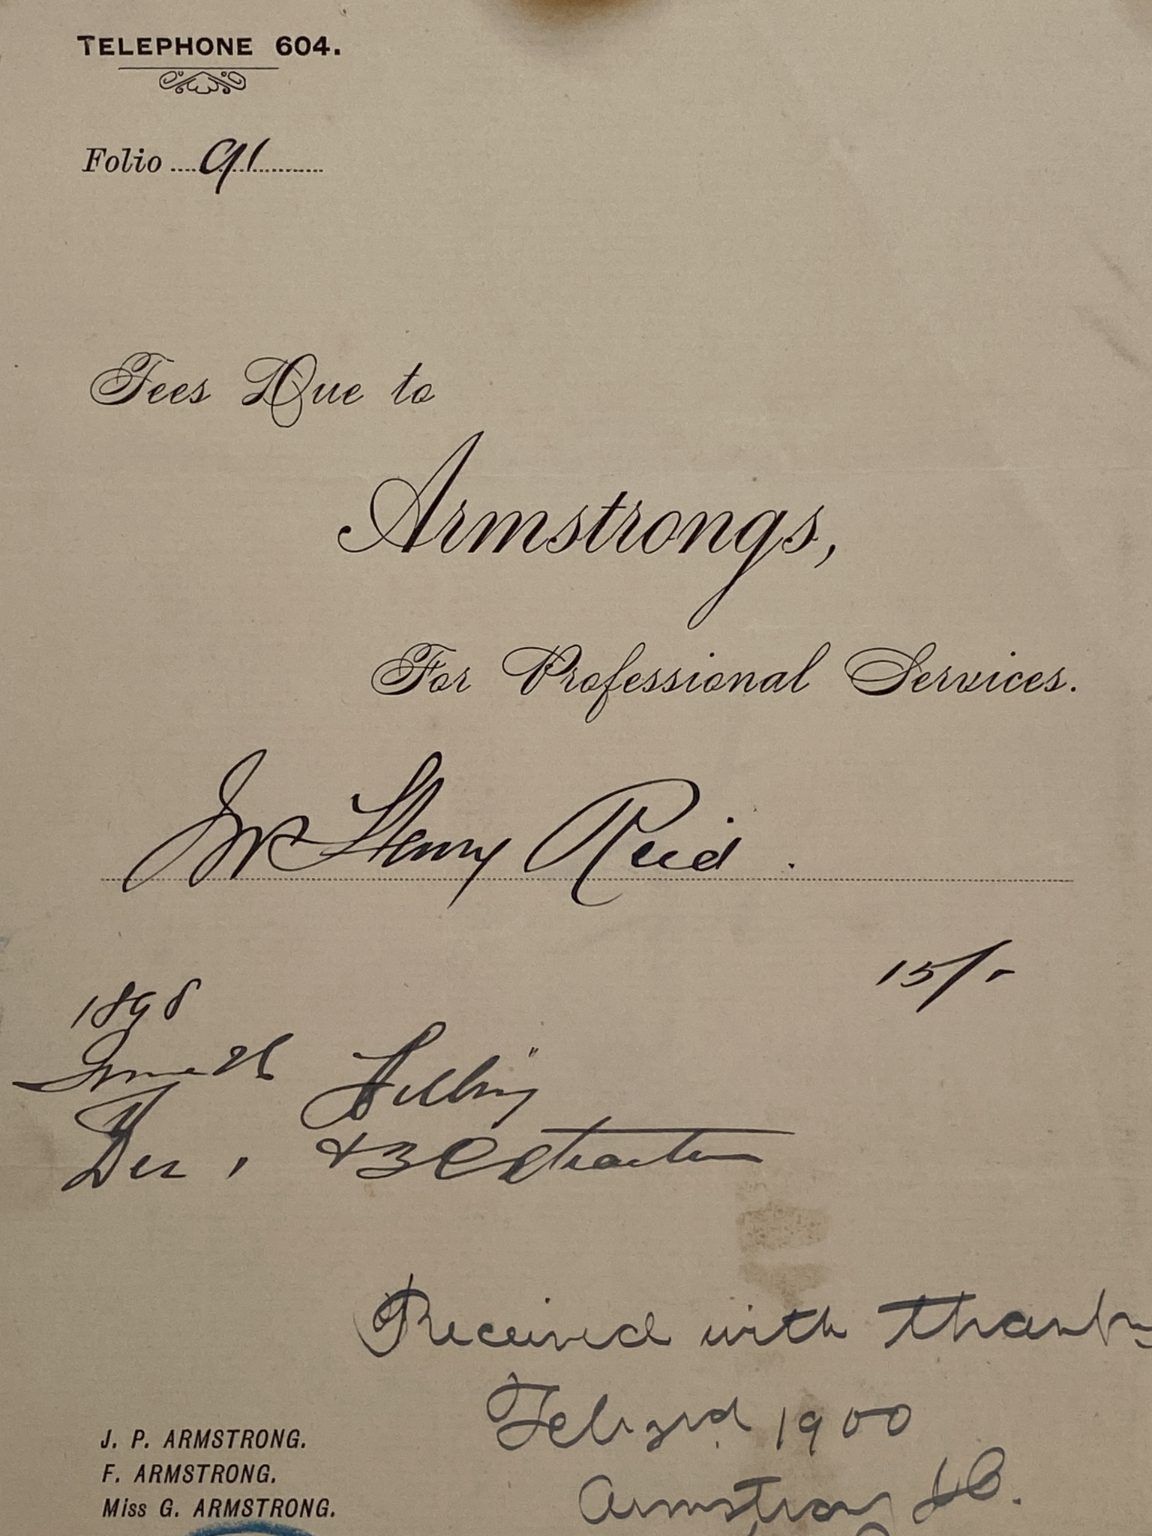 TELEPHONE 604.
Folio 91
Fees Due to
Armstrongs,
For Professional Services.
Henry Reid.
15/-
1898
June 26 Filling
Dec " & 3 Extraction
Received with thanks
Feb 3rd 1900
Armstrong
J. P. ARMSTRONG.
F. ARMSTRONG.
Miss G. ARMSTRONG.